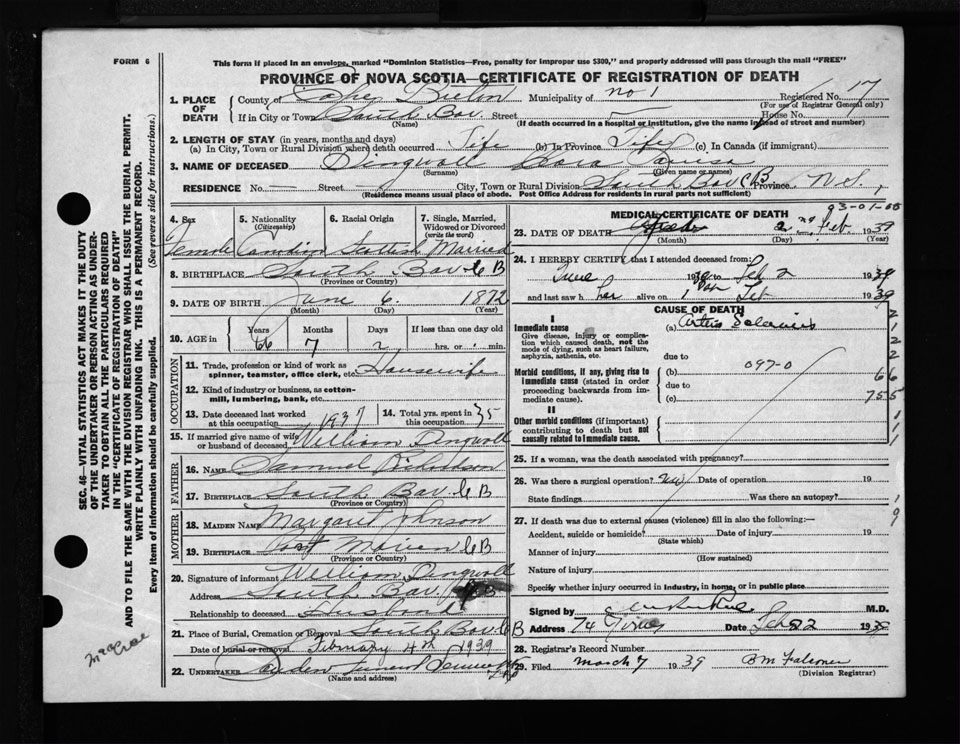 FORM 6
This form if placed in an envelope, marked "Dominion Statistics—Free, penalty for improper use $300," and properly addressed will pass through the mail "FREE"
PROVINCE OF NOVA SCOTIA—CERTIFICATE OF REGISTRATION OF DEATH
1. PLACE OF DEATH County of Cape Breton Municipality of No 1 Registered No. 17
(For use of Registrar General only)
If in City or Town South Bar Street House No.
(Name) (If death occurred in a hospital or institution, give the name instead of street and number)
2. LENGTH OF STAY (in years, months and days)
(a) In City, Town or Rural Division where death occurred Life (b) In Province Life (c) In Canada (if immigrant)
3. NAME OF DECEASED Dingwall Clara Louisa
(Surname) (Given name or names)
RESIDENCE No. Street City, Town or Rural Division South Bar CB Province N.S.
(Residence means usual place of abode. Post Office Address for residents in rural parts not sufficient)
4. Sex 5. Nationality (Citizenship) 6. Racial Origin 7. Single, Married, Widowed or Divorced (write the word)
Female Canadian Scottish Married
8. BIRTHPLACE South Bar C B
(Province or Country)
9. DATE OF BIRTH June 6 1872
(Month) (Day) (Year)
10. AGE in Years Months Days If less than one day old
66 7 2 hrs. or min.
OCCUPATION
11. Trade, profession or kind of work as spinner, teamster, office clerk, etc. Housewife
12. Kind of industry or business, as cotton-mill, lumbering, bank, etc.
13. Date deceased last worked at this occupation 1937 14. Total yrs. spent in this occupation 35
15. If married give name of wife or husband of deceased William Dingwall
FATHER
16. NAME Samuel
17. BIRTHPLACE South Bar C B
(Province or Country)
MOTHER
18. MAIDEN NAME Margaret Johnson
19. BIRTHPLACE Port Morien C B
(Province or Country)
20. Signature of informant William Dingwall
Address South Bar CB
Relationship to deceased Husband
21. Place of Burial, Cremation or Removal South Bar C B
Date of burial or removal February 4th 1939
22. UNDERTAKER
(Name and address)
93-01-00
MEDICAL CERTIFICATE OF DEATH
23. DATE OF DEATH 2nd Feb 1939
(Month) (Day) (Year)
24. I HEREBY CERTIFY that I attended deceased from:
June 19 to Feb 2 1939
and last saw her alive on 1 Feb 1939
CAUSE OF DEATH
I
Immediate cause
Give disease, injury or complication which caused death, not the mode of dying, such as heart failure, asphyxia, asthenia, etc.
(a) Arterio Sclerosis
due to
Morbid conditions, if any, giving rise to immediate cause (stated in order proceeding backwards from immediate cause).
(b) 097-0
due to
(c)
II
Other morbid conditions (if important) contributing to death but not causally related to immediate cause.
25. If a woman, was the death associated with pregnancy?
26. Was there a surgical operation? Date of operation 19
State findings Was there an autopsy?
27. If death was due to external causes (violence) fill in also the following:—
Accident, suicide or homicide? Date of injury 19
(State which)
Manner of injury
(How sustained)
Nature of injury
Specify whether injury occurred in industry, in home, or in public place
Signed by M.D.
Address 74 Date Feb 2 1939
28. Registrar's Record Number
29. Filed March 7 1939 BM Falconer
(Division Registrar)
SEC. 46—VITAL STATISTICS ACT MAKES IT THE DUTY
OF THE UNDERTAKER OR PERSON ACTING AS UNDER-
TAKER TO OBTAIN ALL THE PARTICULARS REQUIRED
IN THE "CERTIFICATE OF REGISTRATION OF DEATH"
AND TO FILE THE SAME WITH THE DIVISION REGISTRAR WHO SHALL ISSUE THE BURIAL PERMIT.
WRITE PLAINLY WITH UNFADING INK. THIS IS A PERMANENT RECORD.
Every item of Information should be carefully supplied. (See reverse side for instructions.)
MacCrae